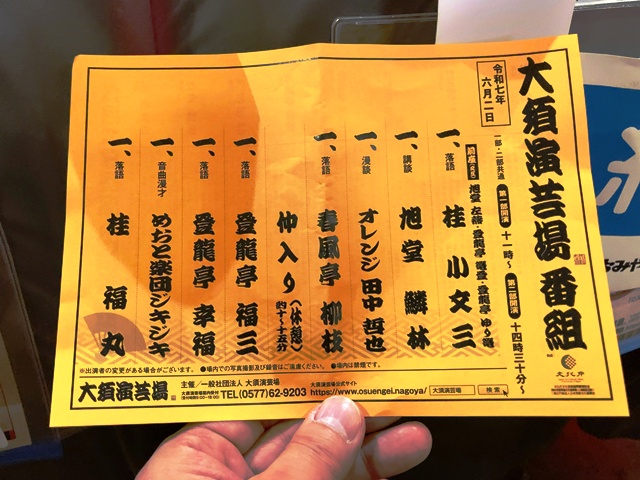 大須演芸場番組
令和七年
六月二日
一部・二部共通
第一部開演
十一時〜
第二部開演
十四時三十分〜
一、落語
桂 小文三
一、講談
旭堂 鱗林
一、漫談
オレンジ田中哲也
一、落語
春風亭 柳枝
仲入り(休憩)
約十〜十五分
一、落語
登龍亭 福三
一、落語
登龍亭 幸福
一、音曲漫才
めおと楽団ジキジキ
一、落語
桂 福丸
※出演者の変更がある場合がございます。
●場内での写真撮影及び録音はご遠慮ください。
●場内は禁煙です。
大須演芸場
主催/一般社団法人 大須演芸場
TEL(0577)62-9203
大須演芸場公式サイト
https://www.osuengei.nagoya/
大須演芸場
検索
文化庁